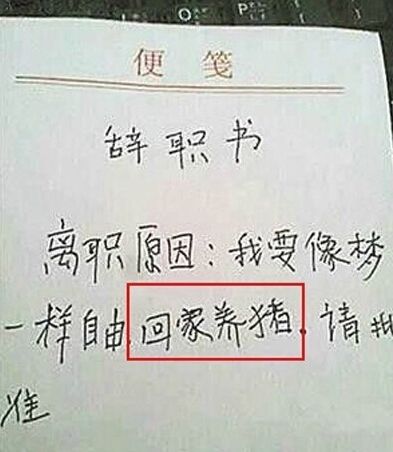 便笺
辞职书
离职原因:我要像梦
一样自由,回家养猪。请批
准